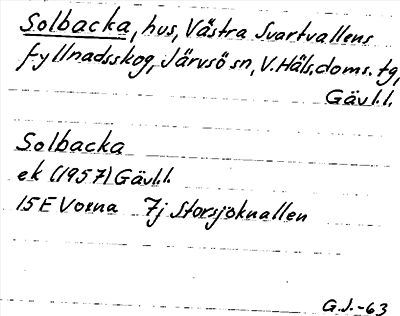 Solbacka, hus, Västra Svartvallens
fyllnadsskog, Järvsö sn, V. Häls. doms. tg,
Gävl.l.
Solbacka
ek (1957) Gävl.l.
15E Voxna 7j Storsjöknallen
G.J.-63